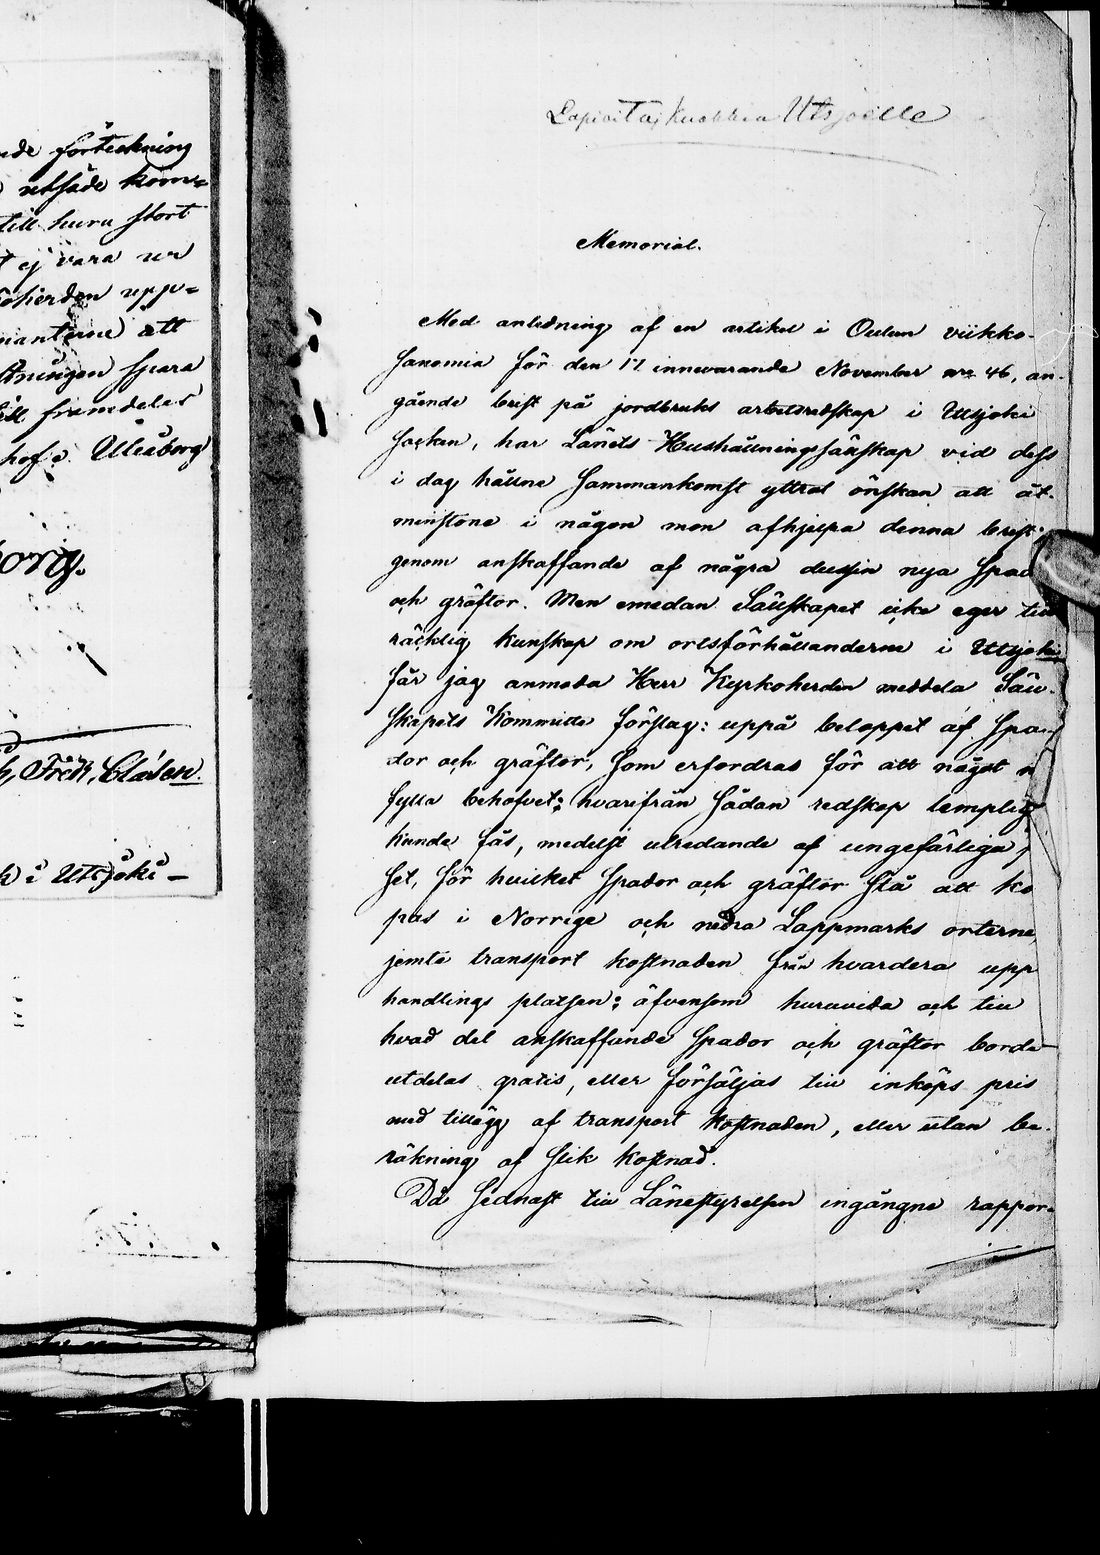 nde förteckning
utsäde kom=
till huru stort
ej vara ur
oherden upp=
anterne att
tningen spara
till framdeles
hof i Uleåborg
borg.
Fredr. Claсen.
i Utsjoki —
Lapioita ja kuokkia Utsjoelle
Memorial.
Med anledning af en artikel i Oulun viikko-
sanomia för den 17 innevarande November nro 46, an-
gående brist på jordbruks arbetsredskap i Utsjoki
socken, har Länets Hushållningssällskap vid dess
i dag hållne sammankomst yttrat önskan att åt-
minstone i någon mon afhjelpa denna brist
genom anskaffande af några dussin nya spad
och gräftor. Men emedan Sällskapet icke eger till
räcklig kunskap om ortsförhållanderne i Utsjoki
får jag anmoda Herr Kyrkoherden meddela Säll-
skapets Kommitté förslag: uppå beloppet af spa-
dor och gräftor, som erfordras för att något
fylla behofvet; hvarifrån sådan redskap lämplig
kunde fås, medelst utredande af ungefärliga
set, för hvilket spador och gräftor stå att kö
pas i Norrige och nedra Lappmarks orterne,
jemte transport kostnaden från hvardera upp
handlings platsen; äfvensom huruvida och till
hvad del anskaffande spador och gräftor borde
utdelas gratis, eller försäljas till inköps pris
med tillägg af transport kostnaden, eller utan be-
räkning af slik kostnad.
Då sednast till Länestyrelsen ingångne rappor-